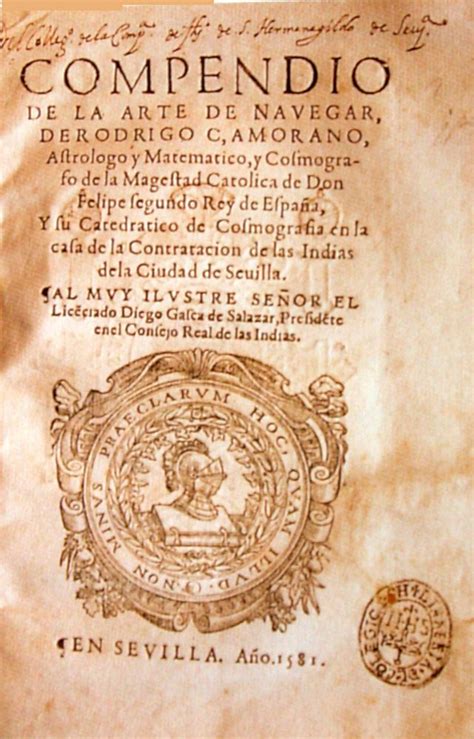 del Colleg.º de la Comp.ª de Jhs de S. Hermenegildo de Sevª
COMPENDIO
DE LA ARTE DE NAVEGAR,
DE RODRIGO C,AMORANO,
Astrologo y Matematico, y Cosmogra-
fo de la Magestad Catolica de Don
Felipe segundo Rey de España,
Y su Catedratico de Cosmografia en la
casa de la Contratacion de las Indias
dela Ciudad de Sevilla.
¶AL MVY ILVSTRE SEÑOR EL
Licẽciado Diego Gasca de Salazar, Presidẽte
enel Consejo Real de las Indias.
PRAECLARVM HOC, QVAM ILLVD. NON MINVS
¶EN SEVILLA. Año. 1581.
IHS